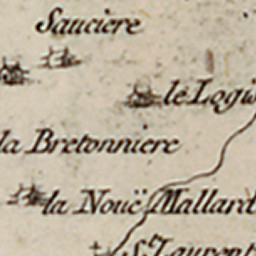 Sauciere
le Logis
la Bretonniere
la Nouë Mallard
St Laurent